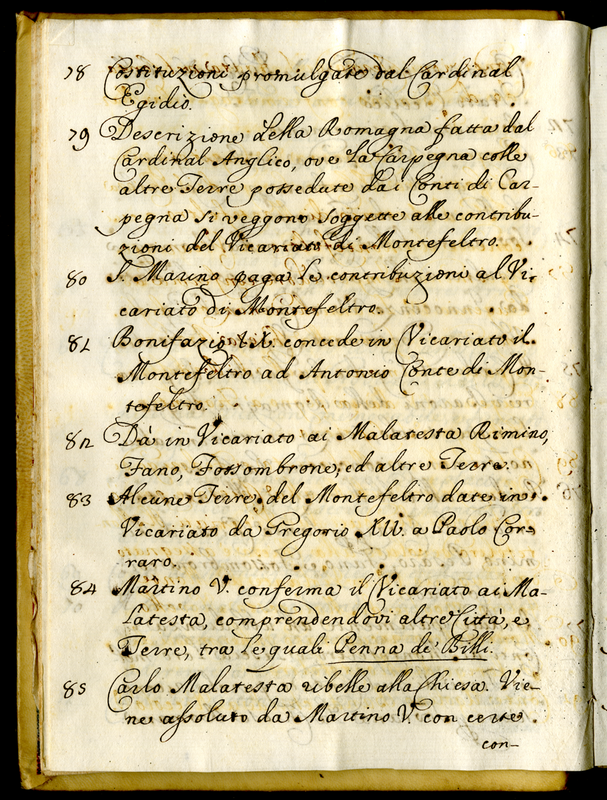 78 Costituzioni promulgate dal Cardinal
Egidio.
79 Descrizione della Romagna fatta dal
Cardinal Anglico, ove la Carpegna colle
altre Terre possedute dai Conti di Car-
pegna si veggono soggette alle contribu-
zioni del Vicariato di Montefeltro.
80 S. Marino paga le contribuzioni al Vi-
cariato di Montefeltro.
81 Bonifazio IX. concede in Vicariato il
Montefeltro ad Antonio Conte di Mon-
tefeltro.
82 Dà in Vicariato ai Malatesta Rimino,
Fano, Fossombrone, ed altre Terre.
83 Alcune Terre del Montefeltro date in
Vicariato da Gregorio XII. a Paolo Cor-
raro.
84 Martino V. conferma il Vicariato ai Ma-
latesta, comprendendovi altre Città, e
Terre, tra le quali Penna de' Billi.
85 Carlo Malatesta ribelle alla Chiesa. Vie-
ne assoluto da Martino V. con certe
con-